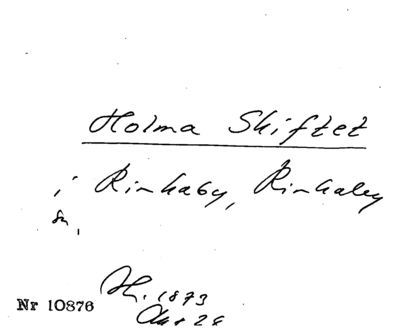 Holma Skiftet
i Rinkaby, Rinkaby
sn,
Nr 10876
H. 1873